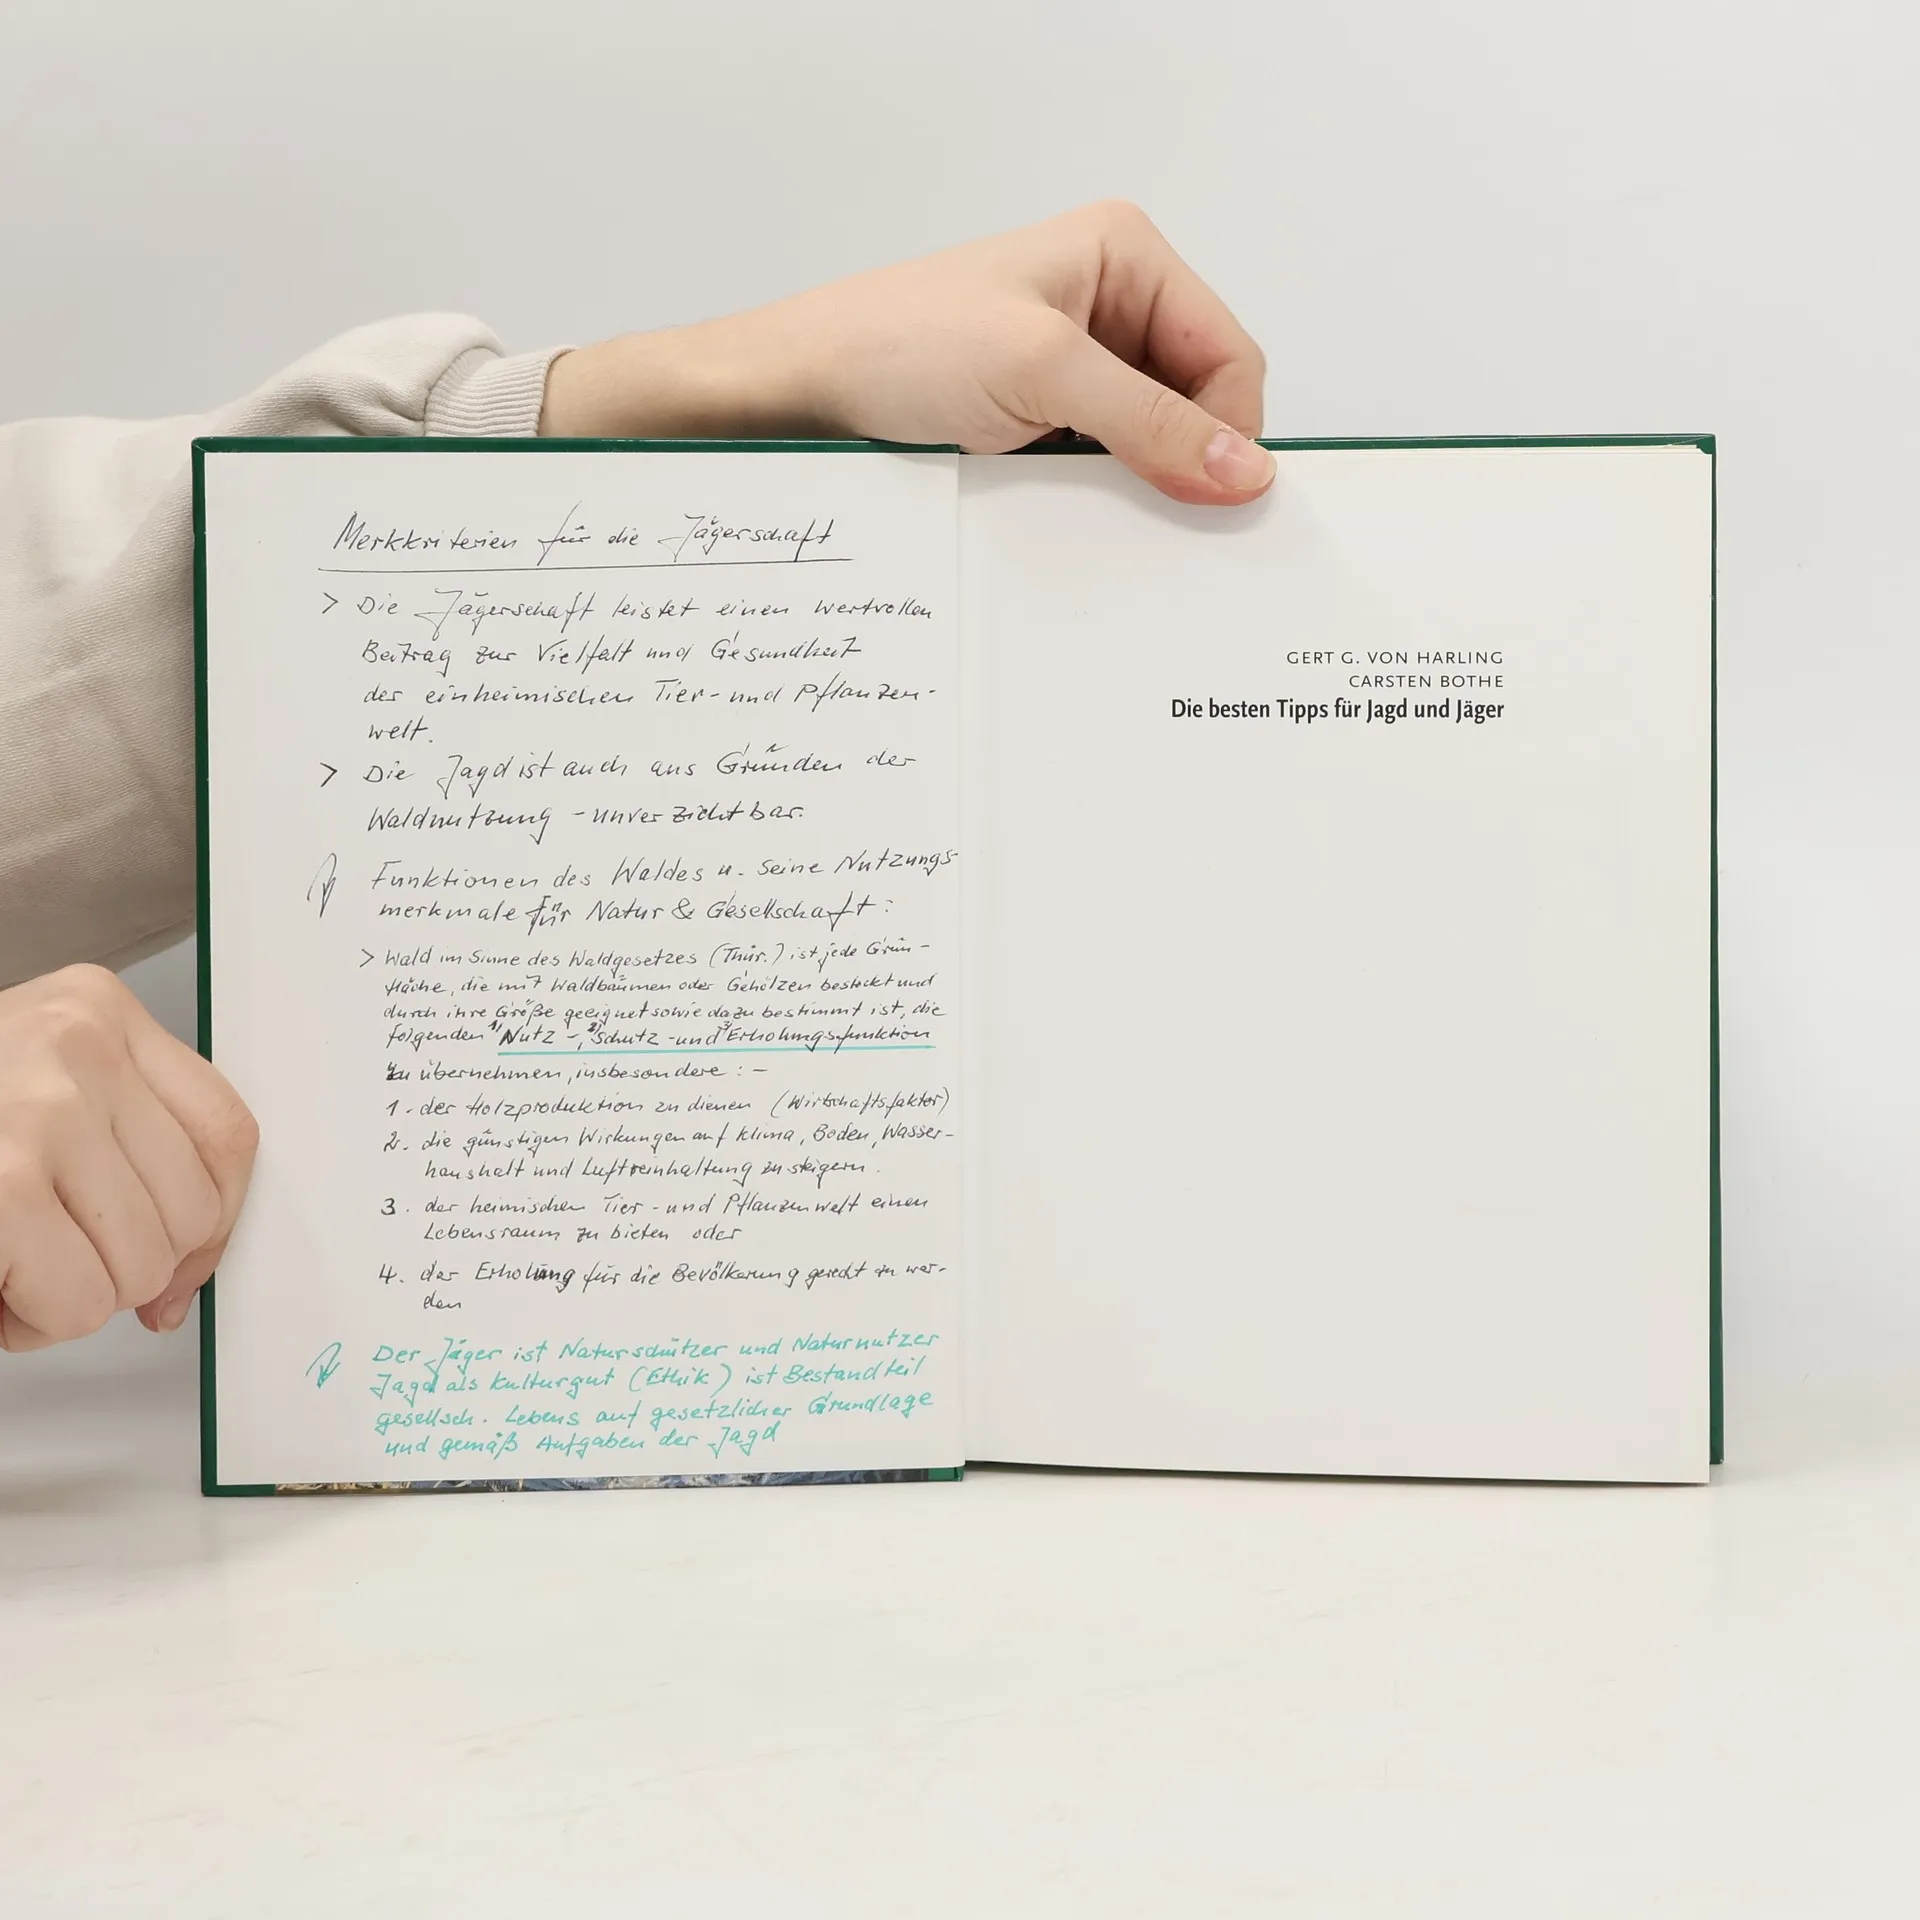 Merkkriterien für die Jägerschaft
> Die Jägerschaft leistet einen wertvollen
Beitrag zur Vielfalt und Gesundheit
der einheimischen Tier- und Pflanzen-
welt.
> Die Jagd ist auch aus Gründen der
Waldnutzung - unverzichtbar.
Funktionen des Waldes u. seine Nutzungs
merkmale für Natur & Gesellschaft:
> Wald im Sinne des Waldgesetzes (Thür.) ist jede Grün-
fläche, die mit Waldbäumen oder Gehölzen bestockt und
durch ihre Größe geeignet sowie dazu bestimmt ist, die
folgenden 1) Nutz-, 2) Schutz- und 3 Erholungsfunktion
zu übernehmen, insbesondere: -
1. der Holzproduktion zu dienen (Wirtschaftsfaktor)
2. die günstigen Wirkungen auf Klima, Boden, Wasser-
haushalt und Luftreinhaltung zu steigern.
3. der heimischen Tier- und Pflanzenwelt einen
Lebensraum zu bieten oder
4. der Erholung für die Bevölkerung gerecht zu wer-
den
Der Jäger ist Naturschützer und Naturnutzer
Jagd als Kulturgut (Ethik) ist Bestandteil
gesellsch. Lebens auf gesetzlicher Grundlage
und gemäß Aufgaben der Jagd
GERT G. VON HARLING
CARSTEN BOTHE
Die besten Tipps für Jagd und Jäger